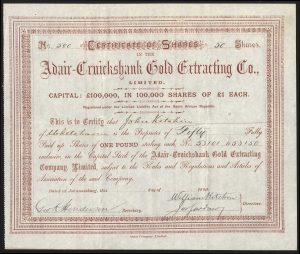 No. 380 CERTIFICATE OF SHARES 50 Shares.
IN THE
Adair-Cruickshank Gold Extracting Co.,
LIMITED.
CAPITAL: £100,000, IN 100,000 SHARES OF £1 EACH.
Registered under the Limited Liability Act of the South African Republic.
This is to Certify that John Kitchin
of is the Proprietor of Fifty Fully
Paid up Shares of ONE POUND Sterling each No. 53101 @ 53150
inclusive, in the Capital Stock of the Adair-Cruickshank Gold Extracting
Company, Limited, subject to the Rules and Regulations and Articles of
Association of the said Company.
Dated at Johannesburg, this day of 189
William Kitchin
Henderson Secretary. Directors.